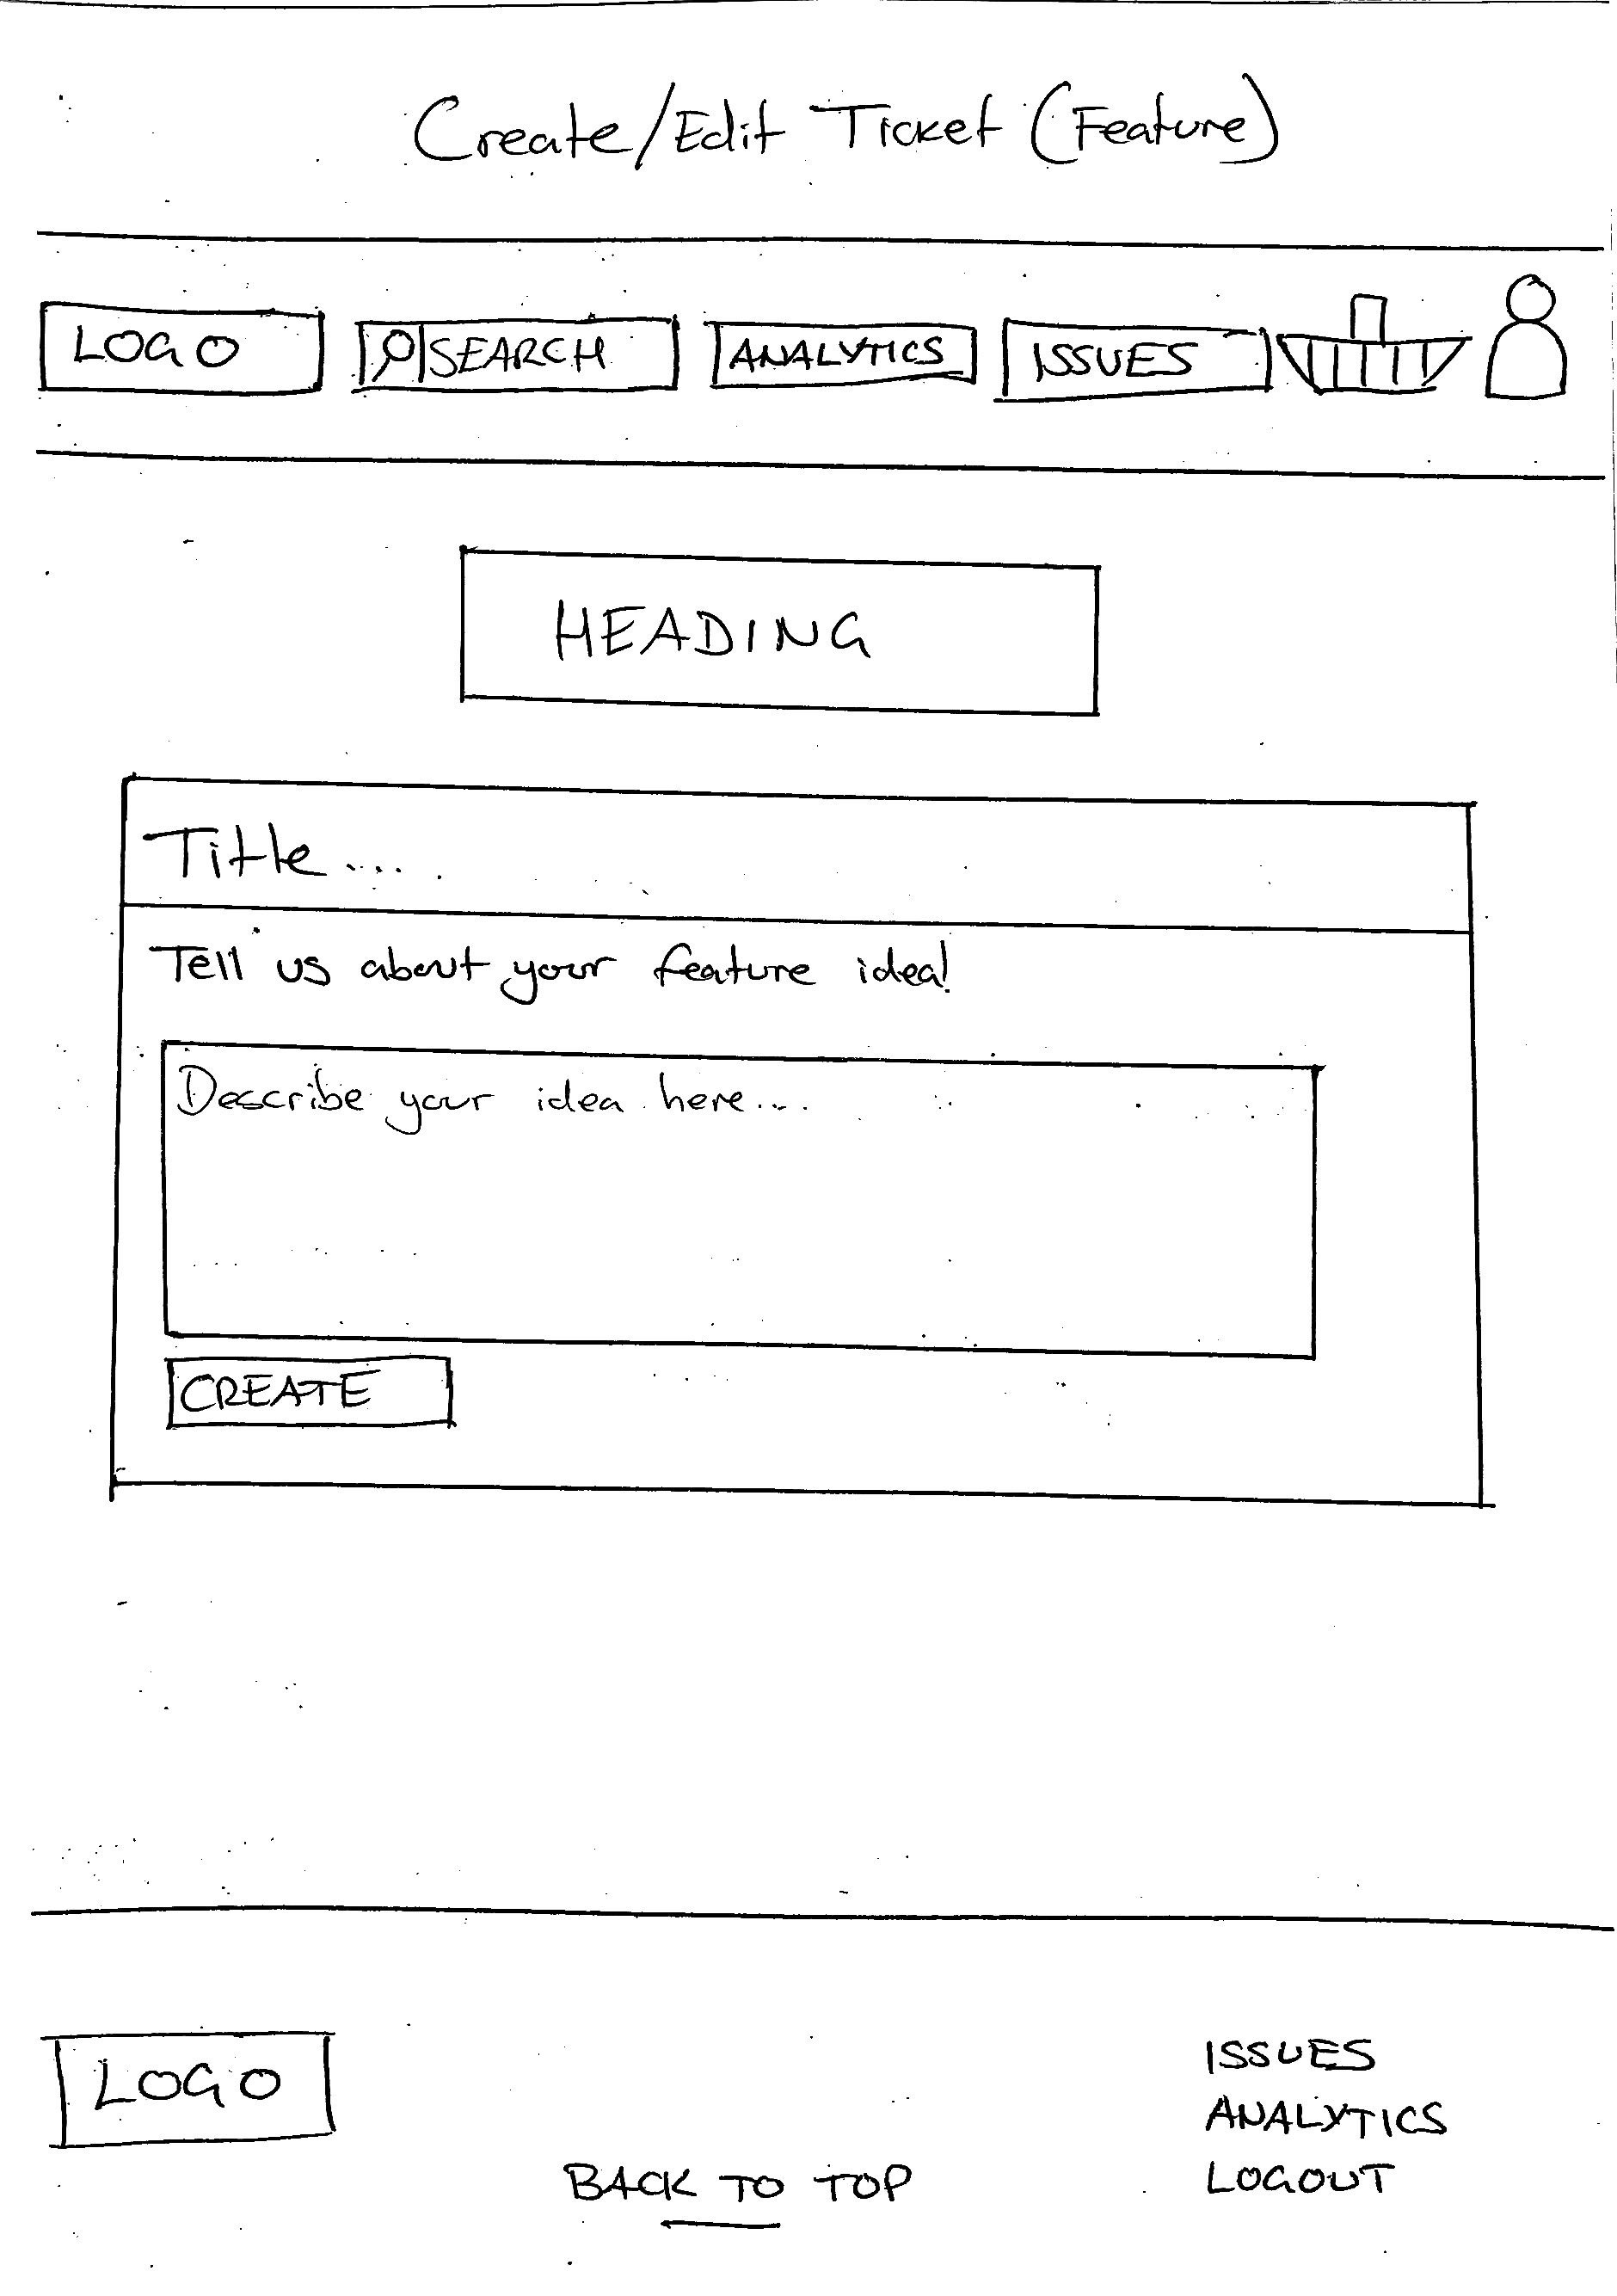 Create/Edit Ticket (Feature)
LOGO SEARCH ANALYTICS ISSUES
HEADING
Title....
Tell us about your feature idea!
Describe your idea here....
CREATE
LOGO
ISSUES
ANALYTICS
BACK TO TOP
LOGOUT